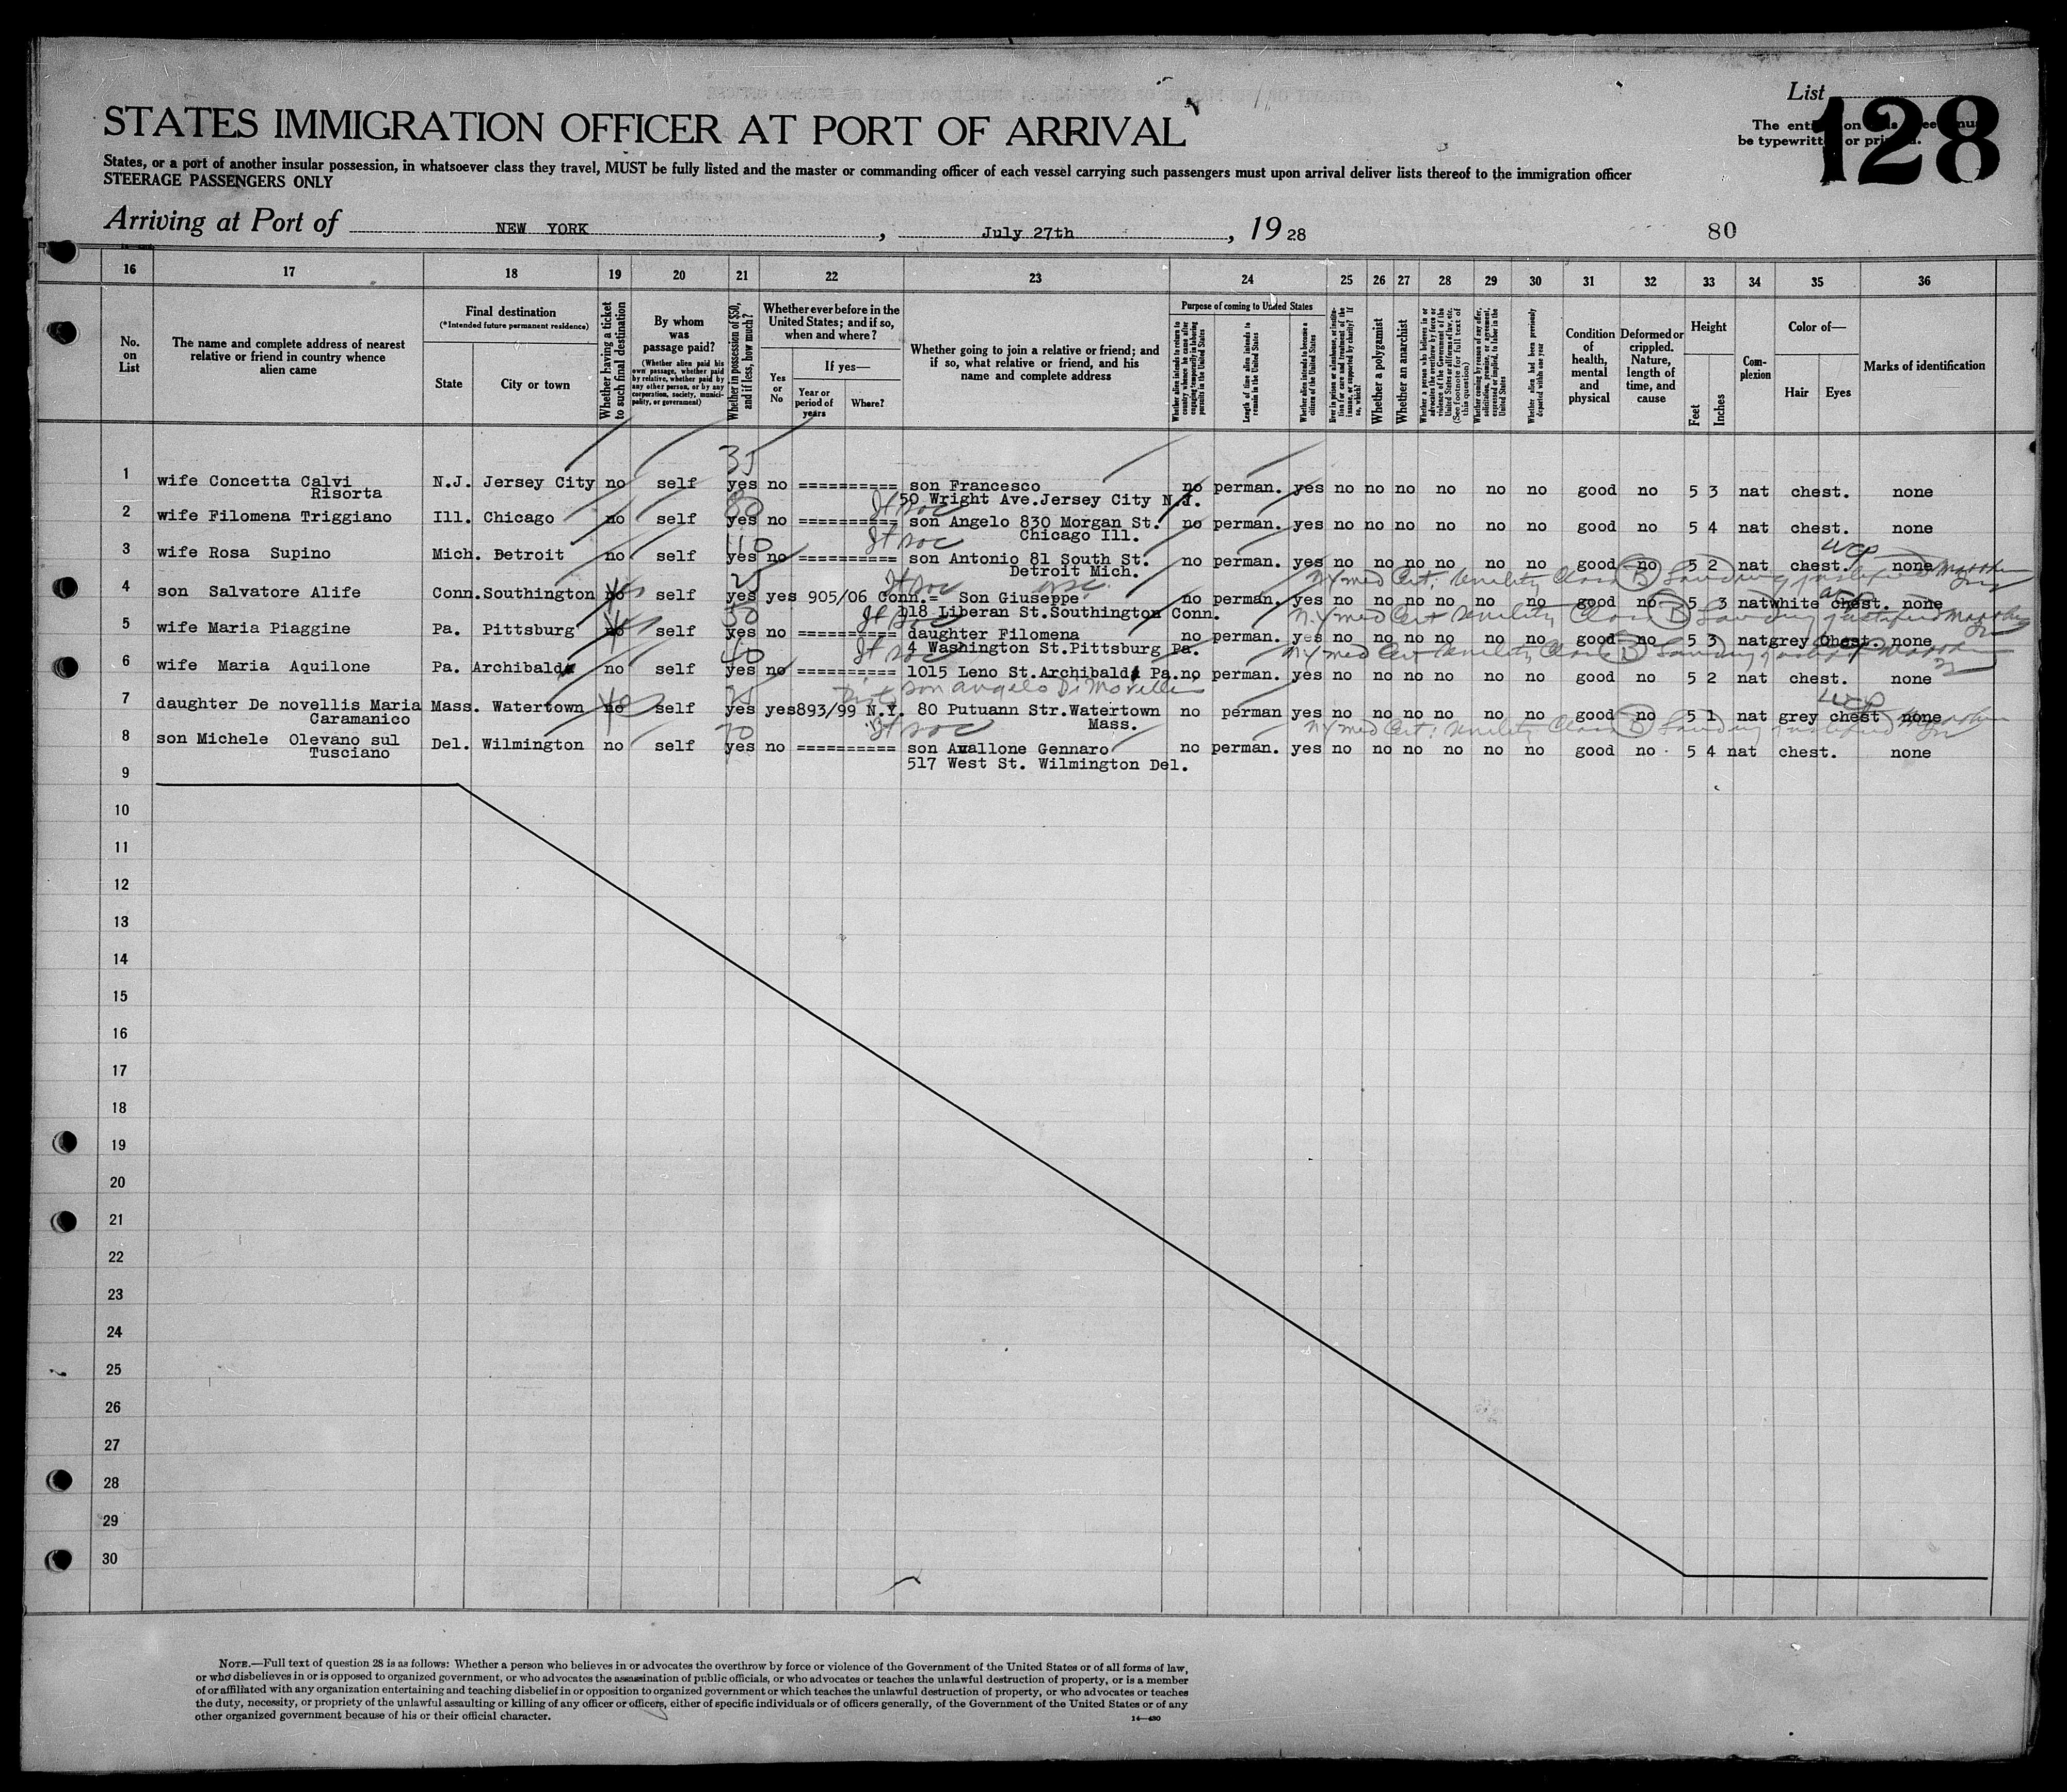 List
128
STATES IMMIGRATION OFFICER AT PORT OF ARRIVAL
The entries on this sheet must
be typewritten or printed.
States, or a port of another insular possession, in whatsoever class they travel, MUST be fully listed and the master or commanding officer of each vessel carrying such passengers must upon arrival deliver lists thereof to the immigration officer
STEERAGE PASSENGERS ONLY
Arriving at Port of NEW YORK, July 27th, 1928
80
16 17 18 19 20 21 22 23 24 25 26 27 28 29 30 31 32 33 34 35 36
No. on List
The name and complete address of nearest relative or friend in country whence alien came
Final destination
(*Intended future permanent residence)
State
City or town
Whether having a ticket to such final destination
By whom was passage paid?
(Whether alien paid his own passage, whether paid by relative, whether paid by any other person, or by any corporation, society, municipality, or government)
Whether in possession of $50, and if less, how much?
Whether ever before in the United States; and if so, when and where?
Yes or No
If yes—
Year or period of years
Where?
Whether going to join a relative or friend; and if so, what relative or friend, and his name and complete address
Purpose of coming to United States
Whether alien intends to return to country whence he came after engaging temporarily in laboring pursuits in the United States
Length of time alien intends to remain in the United States
Whether alien intends to become a citizen of the United States
Ever in prison or almshouse, or institution for care and treatment of the insane, or supported by charity? If so, which?
Whether a polygamist
Whether an anarchist
Whether a person who believes in or advocates the overthrow by force or violence of the Government of the United States or all forms of law, etc. (See footnote for full text of this question)
Whether coming by reason of any offer, solicitation, promise, or agreement, expressed or implied, to labor in the United States
Whether alien had been previously deported within one year
Condition of health, mental and physical
Deformed or crippled. Nature, length of time, and cause
Height
Feet
Inches
Complexion
Color of—
Hair
Eyes
Marks of identification
35
1 wife Concetta Calvi N.J. Jersey City no self yes no ========== son Francesco no perman. yes no no no no no no good no 5 3 nat chest. none
Risorta 50 Wright Ave.Jersey City N.J.
80
2 wife Filomena Triggiano Ill. Chicago no self yes no ========== son Angelo 830 Morgan St. no perman. yes no no no no no no good no 5 4 nat chest. none
Chicago Ill.
110
3 wife Rosa Supino Mich. Detroit no self yes no ========== son Antonio 81 South St. no perman. yes no no no no no no good no 5 2 nat chest. none
Detroit Mich.
25
N.Y. med Cert: Senility Class B Landing justified
4 son Salvatore Alife Conn. Southington no self yes yes 905/06 Conn.= Son Giuseppe no perman. yes no no no no no no good no 5 3 nat white chest. none
118 Liberan St.Southington Conn.
50
N.Y. med Cert Senility Class B Landing justified
5 wife Maria Piaggine Pa. Pittsburg no self yes no ========== daughter Filomena no perman. yes no no no no no no good no 5 3 nat grey chest. none
4 Washington St.Pittsburg Pa.
40
N.Y. med Cert Senility Class B Landing justified
6 wife Maria Aquilone Pa. Archibald no self yes no ========== 1015 Leno St.Archibald Pa. no perman. yes no no no no no no good no 5 2 nat chest. none
son Angelo Di Novellis
7 daughter De novellis Maria Mass. Watertown no self yes yes 893/99 N.Y. 80 Putuann Str.Watertown no perman yes no no no no no no good no 5 1 nat grey chest none
Caramanico Mass.
70
N.Y. med Cert: Senility Class B Landing justified
8 son Michele Olevano sul Del. Wilmington no self yes no ========== son Avallone Gennaro no perman. yes no no no no no no good no 5 4 nat chest. none
Tusciano 517 West St. Wilmington Del.
9
10
11
12
13
14
15
16
17
18
19
20
21
22
23
24
25
26
27
28
29
30
NOTE.—Full text of question 28 is as follows: Whether a person who believes in or advocates the overthrow by force or violence of the Government of the United States or of all forms of law,
or who disbelieves in or is opposed to organized government, or who advocates the assassination of public officials, or who advocates or teaches the unlawful destruction of property, or is a member
of or affiliated with any organization entertaining and teaching disbelief in or opposition to organized government or which teaches the unlawful destruction of property, or who advocates or teaches
the duty, necessity, or propriety of the unlawful assaulting or killing of any officer or officers, either of specific individuals or of officers generally, of the Government of the United States or of any
other organized government because of his or their official character.
14—430